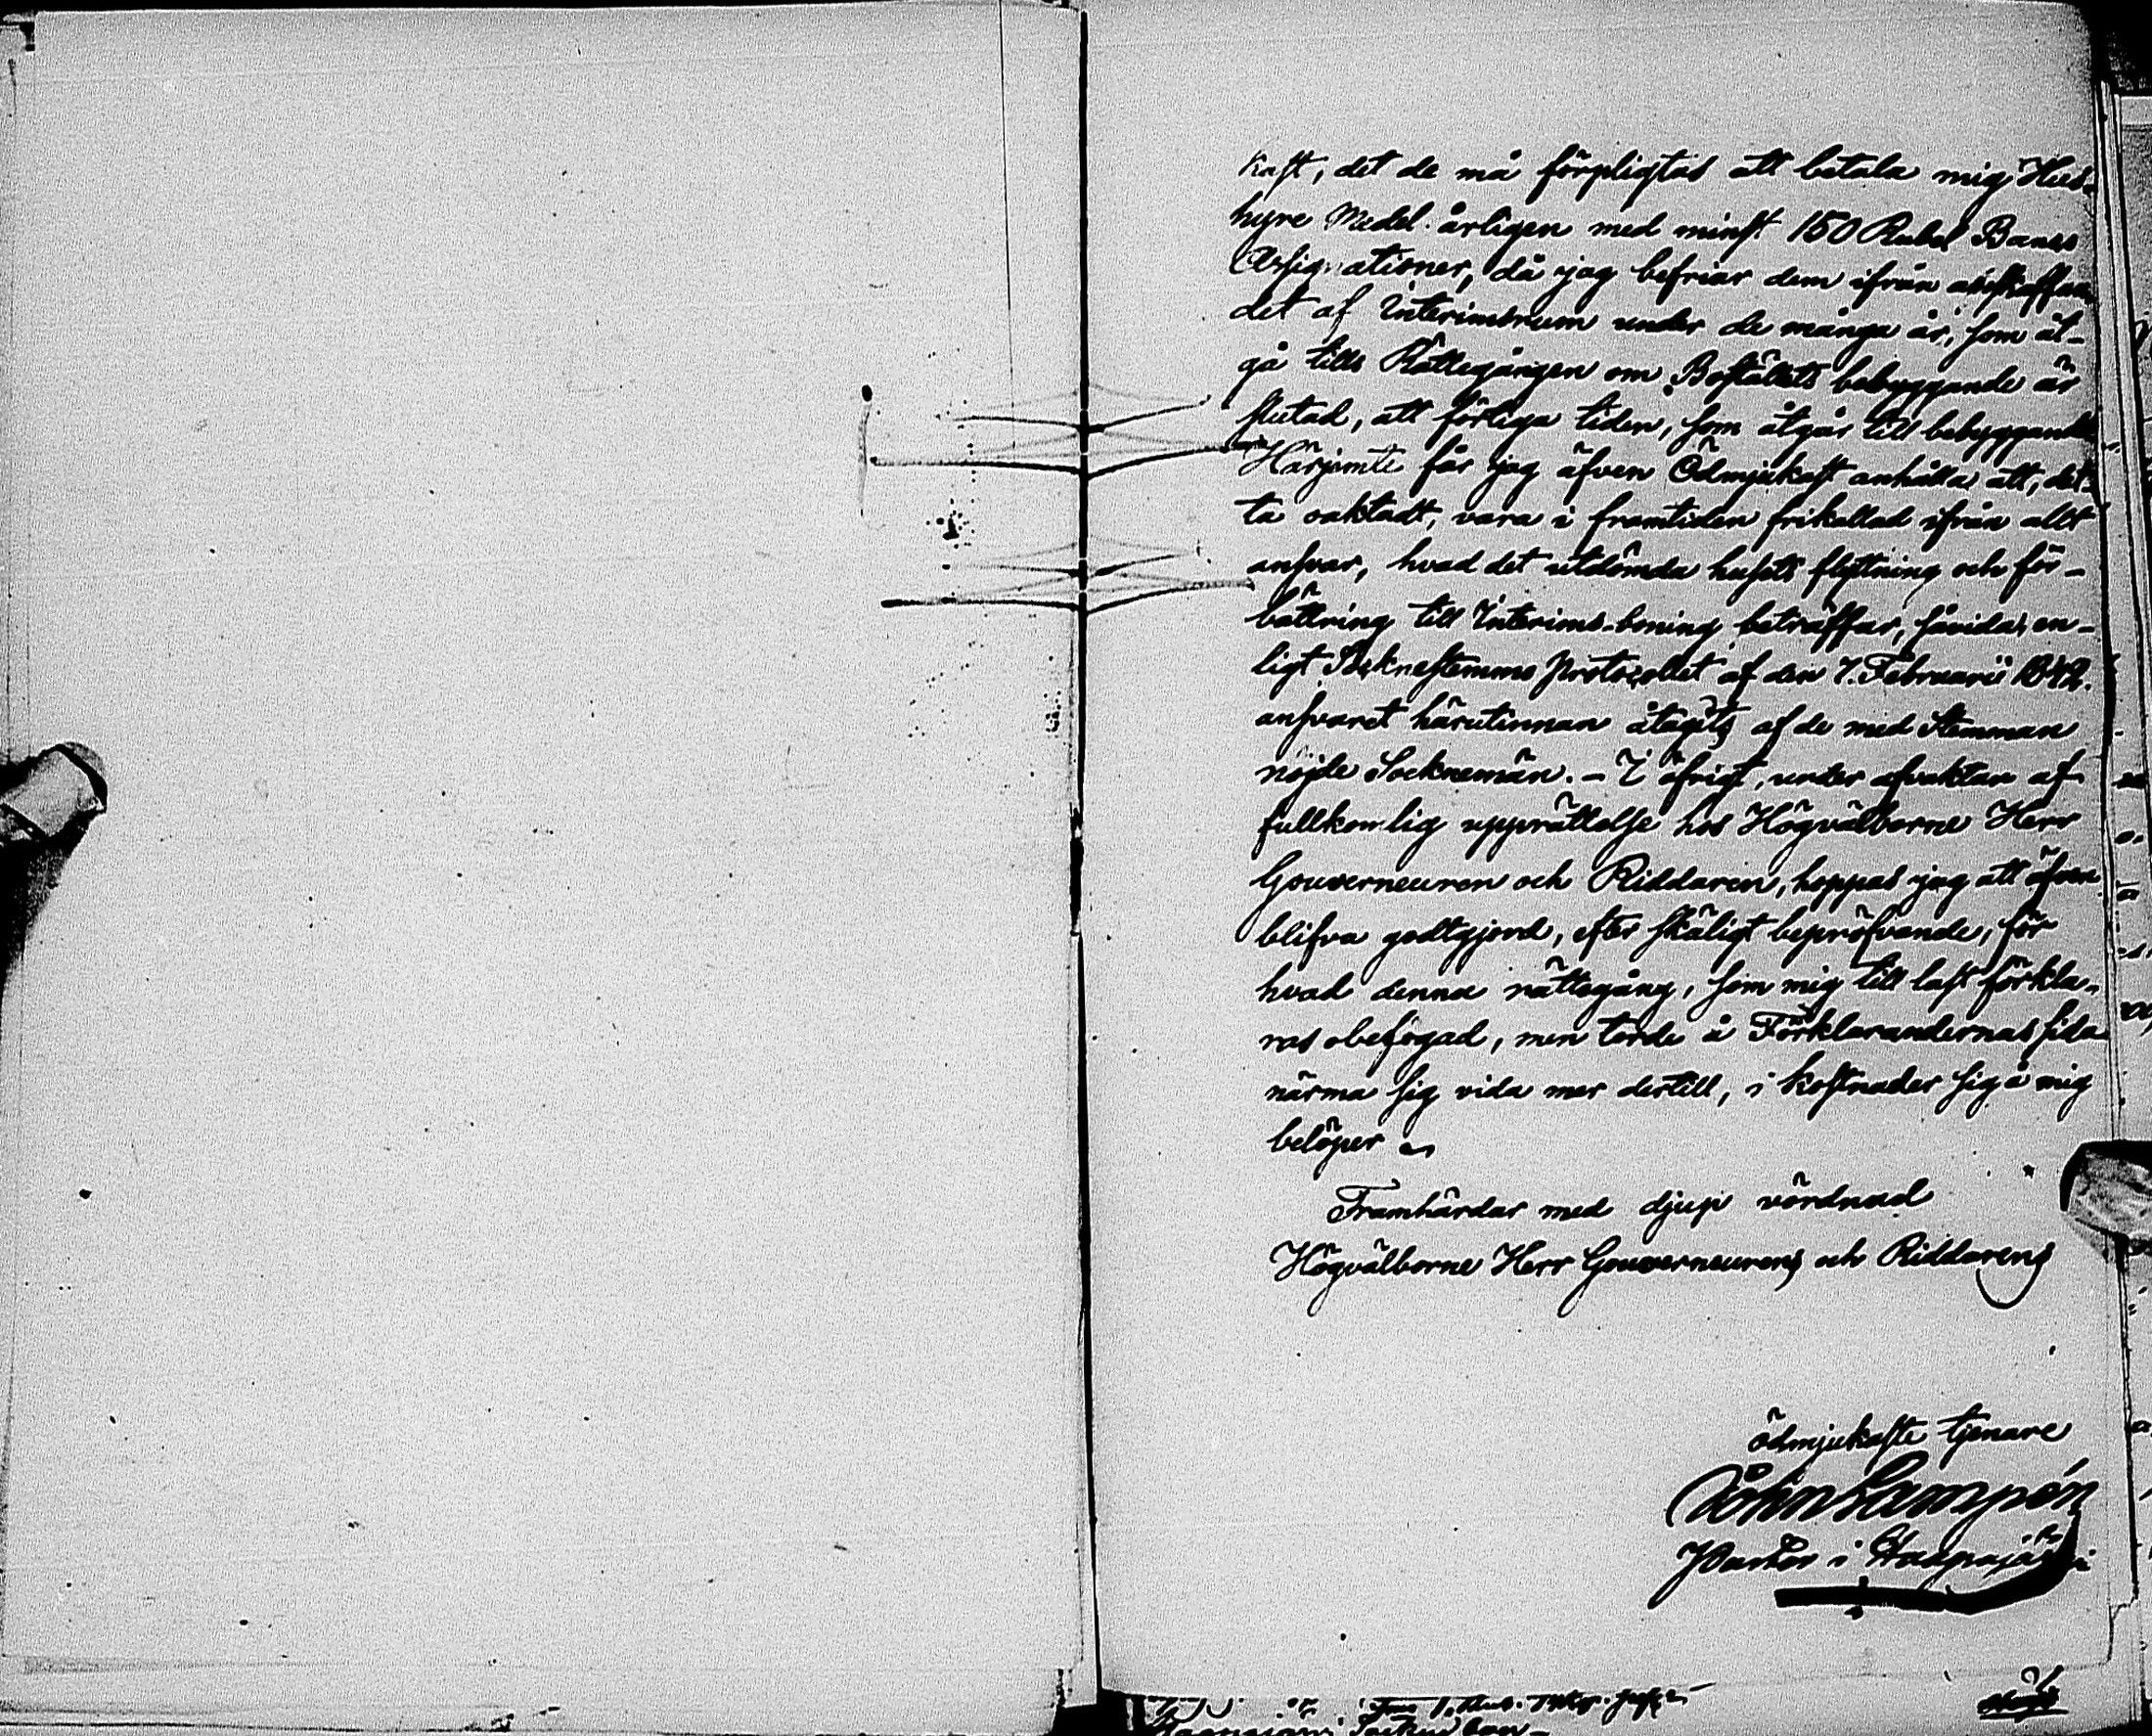 kast, det de må förpligtas att betala mig Hus-
hyre Medel årligen med minst 150 Rubel Banco
Assignationer, då jag befriar dem ifrån anskaffan-
det af Interimsrum under de många år, som åt-
gå tills Rättegången om Boställets bebyggande är
slutad, att förtiga tiden, som åtgår till bebyggandet
Härjemte får jag äfven Ödmjukast anhålla att, det-
ta oaktadt, vara i framtiden frikallad ifrån allt
ansvar, hvad det utdömda husets flyttning och för-
bättring till Interims-boning beträffar, såvida, en-
ligt Socknestemmo Protocollet af den 7. Februarii 1842.
ansvaret härutinnan åtagits af de med Stemman
nöjde Socknemän. - I öfrigt, under afvaktan af
fullkomlig upprättelse hos Högvälborne Herr
Gouverneuren och Riddaren, hoppas jag att äfven
blifva godtgjord, efter skäligt bepröfvande, för
hvad denna rättegång, som mig till last förkla-
ras obefogad, men torde å Förklarandernas sida
närma sig vida mer dertill, i kostnader sig å mig
belöper
Framhärdar med djup vördnad
Högvälborne Herr Gouverneurens och Riddarens
ödmjukaste tjenare
Johan Lampén
Pastor i Haapajärvi